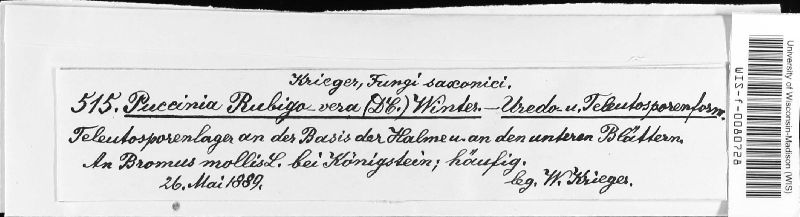 Krieger, Fungi saxonici.
515. Puccinia Rubigo vera (DC.) Winter. — Uredo u. Teleutosporenform.
Teleutosporenlager an der Basis der Halme u. an den unteren Blättern.
An Bromus mollis L. bei Königstein; häufig.
26. Mai 1889.
leg. W. Krieger.
University of Wisconsin-Madison (WIS)
WIS-f-0080728